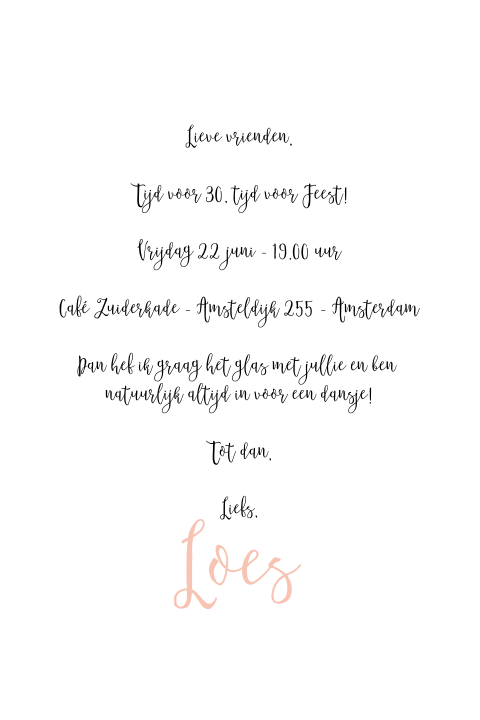 Lieve vrienden,
Tijd voor 30, tijd voor Feest!
Vrijdag 22 juni - 19.00 uur
Café Zuiderkade - Amsteldijk 255 - Amsterdam
Dan hef ik graag het glas met jullie en ben
natuurlijk altijd in voor een dansje!
Tot dan,
Liefs,
Loes